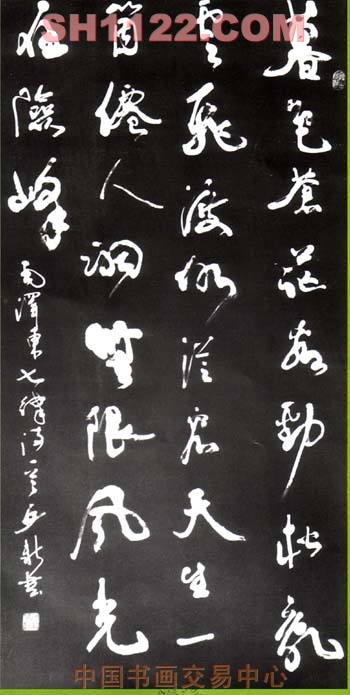 SH1122.COM
暮色苍茫看劲松乱
云飞渡仍从容天生一
个仙人洞无限风光
在险峰
毛泽东七律诗一首
中国书画交易中心